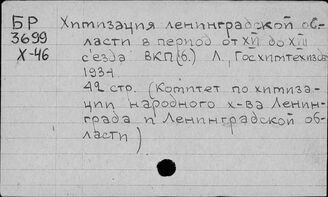 БР
3699
X-46
Химизация ленинградской об-
ласти в период от XVI до XVII
с'езда ВКП(б.) Л., Госхимтехиздат
1934
42 стр. (Комитет по химиза-
ции народного х-ва Ленин-
града и Ленинградской об-
ласти)